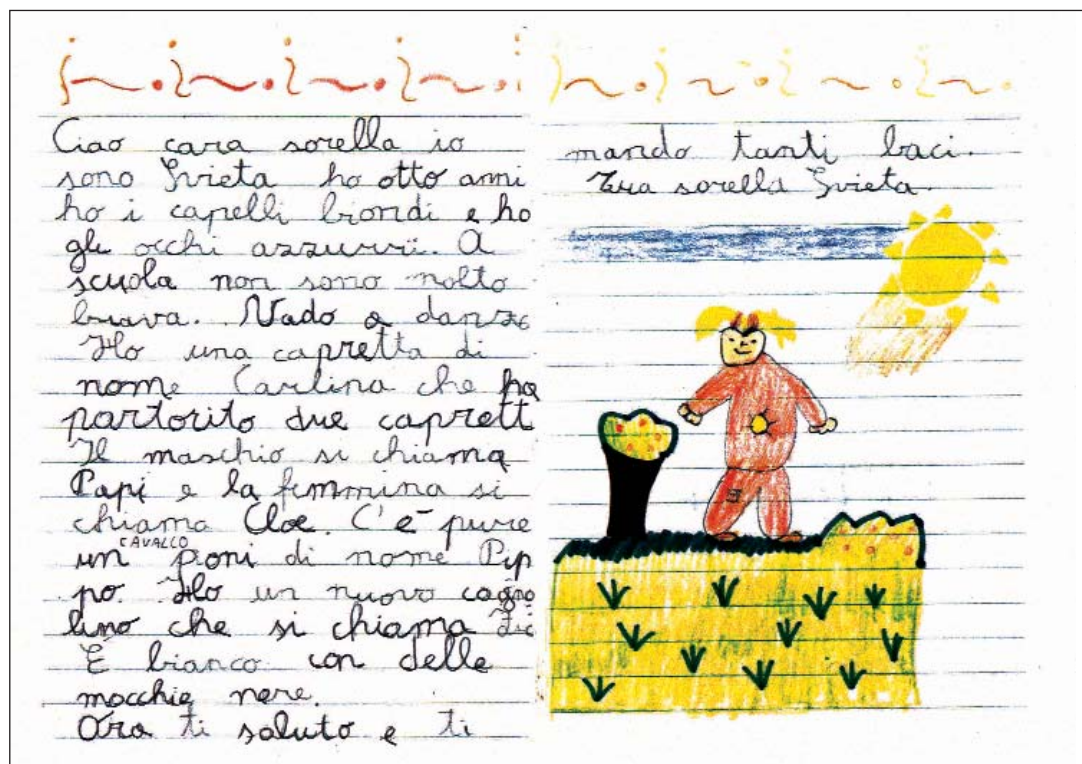 Ciao cara sorella io
sono Svieta ho otto anni
ho i capelli biondi e ho
gli occhi azzurri. A
scuola non sono molto
brava. Vado a danza
Ho una capretta di
nome Carlina che ha
partorito due caprett
Il maschio si chiama
Papi e la femmina si
chiama Cloe. C'è pure
CAVALLO
un poni di nome Pip
po. Ho un nuovo cagno
lino che si chiama
È bianco con delle
macchie nere.
Ora ti saluto e ti
mando tanti baci.
Tua sorella Svieta.